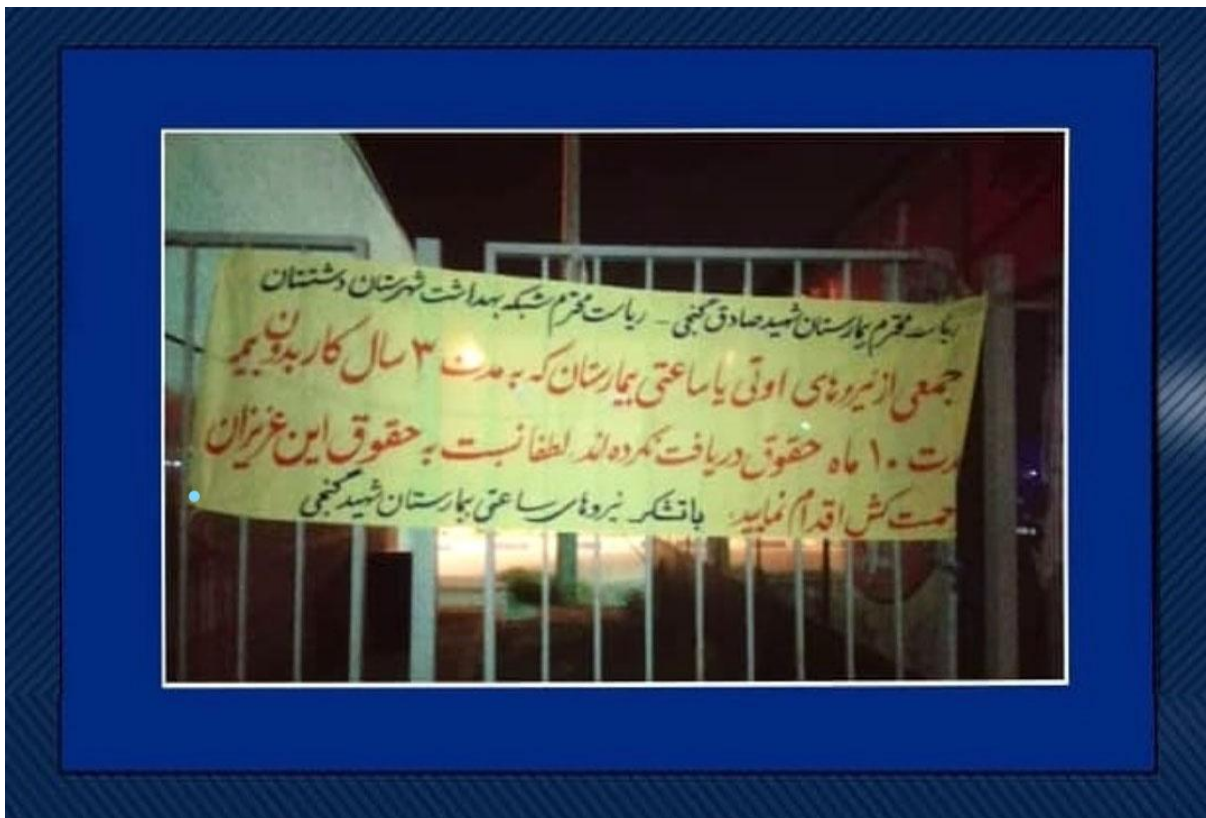 ریاست محترم بیمارستان شهید صادق گنجی - ریاست محترم شبکه بهداشت شهرستان دشتستان
جمعی از نیروهای اوتی یا ساعتی بیمارستان که به مدت ۳ سال کار بدون بیمه
مدت ۱۰ ماه حقوق دریافت نکرده اند. لطفا نسبت به حقوق این عزیزان
زحمت کش اقدام نمایید. باتشکر نیروهای ساعتی بیمارستان شهید گنجی